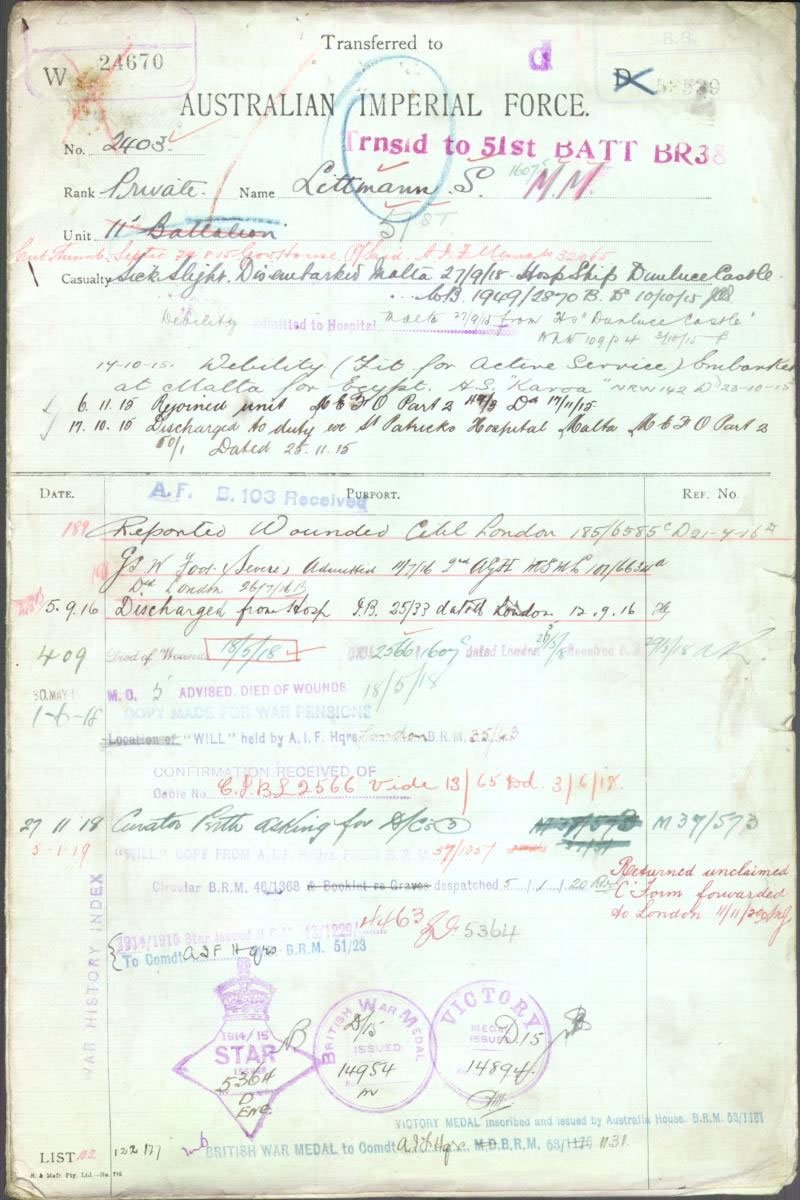 Transferred to
d
W 24670
D 53539
B.R.
AUSTRALIAN IMPERIAL FORCE.
No. 2403
Trnsfd to 51st BATT BR38
Rank Private. Name Littmann, S. 1607c M.M.
Unit 11th Battalion 51ST
Cut Thumb. Septic 29 8 15 Gov. House
Casualty Sick Slight. Disembarked Malta 27/9/18 Hosp Ship Dunluce Castle.
B. 1949/2870 B. D 10/10/15
Debility Admitted to Hospital Malta 27/9/15 from HS "Dunluce Castle"
NRW 109 p 4 3/10/15
14-10-15. Debility (Fit for Active Service) Embarked
at Malta for Egypt. H.S. "Karoa" NRW 142 D 23-10-15
6. 11. 15 Rejoined unit M E F O Part 2 Dd 17/11/15
17. 10. 15 Discharged to duty ex St Patricks Hospital Malta M E F O Part 2
50/1 Dated 25. 11. 15
DATE. PURPORT. REF. NO.
A.F. B. 103 Received
189 Reported Wounded Cable London 185/6585c D 21-7-16
GSW Foot (Severe) Admitted 11/7/16 2nd AGH
Dd London 26/7/16 B
5. 9. 16 Discharged from Hosp I.B. 25/33 dated London 12. 9. 16
409 Died of Wounds 18/5/18 2566 1607c dated London Received B.R. 29/5/18
30. MAY 1 M. O. 5 ADVISED, DIED OF WOUNDS 18/5/18
1-6-18 COPY MADE FOR WAR PENSIONS
Location of "WILL" held by A.I.F. Hqrs. London B.R.M. 35/43
CONFIRMATION RECEIVED OF
Cable No. 2566 vide 13/65 Dd. 3/6/18.
27 11 18 Curator Perth asking for D/C M 37/573 M 37/573
5-1-19 "WILL" COPY FROM A.I.F. HQrs. FILED B.R.M. 57/1057
Circular B.R.M. 46/1368 & Booklet re Graves despatched 5/1/20
Returned unclaimed
"C" Form forwarded
to London 4/11/20
WAR HISTORY INDEX
1914/1915 Star issued B.R.M. 43/1229/ 4463 D. 5364
To Comdt A I F Hqrs B.R.M. 51/23
1914/15
STAR
ISSUED
5364
D
ENG.
BRITISH WAR MEDAL
D/15
ISSUED
14954
VICTORY
MEDAL
ISSUED
D.15
14894
VICTORY MEDAL inscribed and issued by Australia House. B.R.M. 53/1131
LIST 102 122 177 BRITISH WAR MEDAL to Comdt A.I.F. Hqrs M.D.B.R.M. 53/1175 1131.